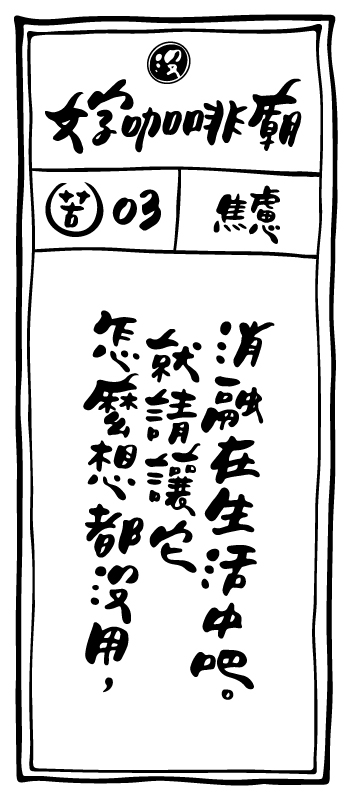 沒
好咖啡廟
苦 03
焦慮
怎麼想都沒用，
就請讓它
消融在生活中吧。